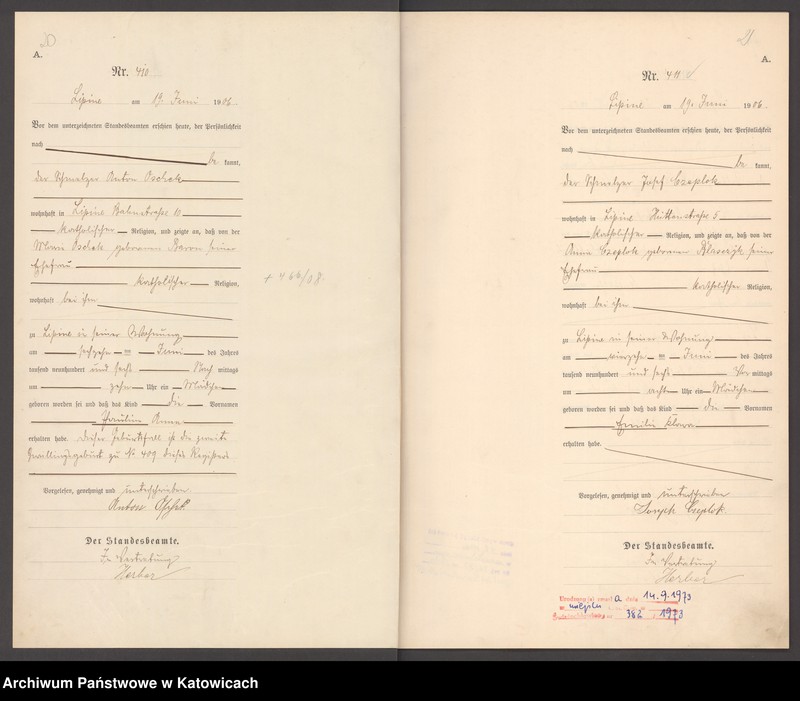 A.
Nr. 410
Lipine am 19. Juni 1906
Vor dem unterzeichneten Standesbeamten erschien heute, der Persönlichkeit
nach
be kannt,
der Schmelzer Anton Oschek
wohnhaft in Lipine Bahnstraße 10
katholischer Religion, und zeigte an, daß von der
Marie Oschek geborenen Baron seiner
Ehefrau
katholischer Religion,
wohnhaft bei ihm
zu Lipine in seiner Wohnung
am sechzehn ten Juni des Jahres
tausend neunhundert und sechs Nach mittags
um zehn Uhr ein Mädchen
geboren worden sei und daß das Kind die Vornamen
Pauline Anna
erhalten habe. Dieser Geburtsfall ist die zweite
Zwillingsgeburt zu No 409 dieses Registers
Vorgelesen, genehmigt und unterschrieben
Anton
Der Standesbeamte.
In Vertretung
Herber
+ 466/08.
21
A.
Nr. 411
Lipine am 19. Juni 1906
Vor dem unterzeichneten Standesbeamten erschien heute, der Persönlichkeit
nach
be kannt,
der Schmelzer Josef Czeplok
wohnhaft in Lipine Hüttenstraße 5
katholischer Religion, und zeigte an, daß von der
Anna Czeplok geborenen seiner
Ehefrau
katholischer Religion,
wohnhaft bei ihm
zu Lipine in seiner Wohnung
am vierzehn ten Juni des Jahres
tausend neunhundert und sechs Vor mittags
um acht Uhr ein Mädchen
geboren worden sei und daß das Kind die Vornamen
Emilie Klara
erhalten habe.
Vorgelesen, genehmigt und unterschrieben
Joseph Czeplok
Der Standesbeamte.
In Vertretung
Herber
a dnia 14.9.1973
w
nr 382 1973
Archiwum Państwowe w Katowicach